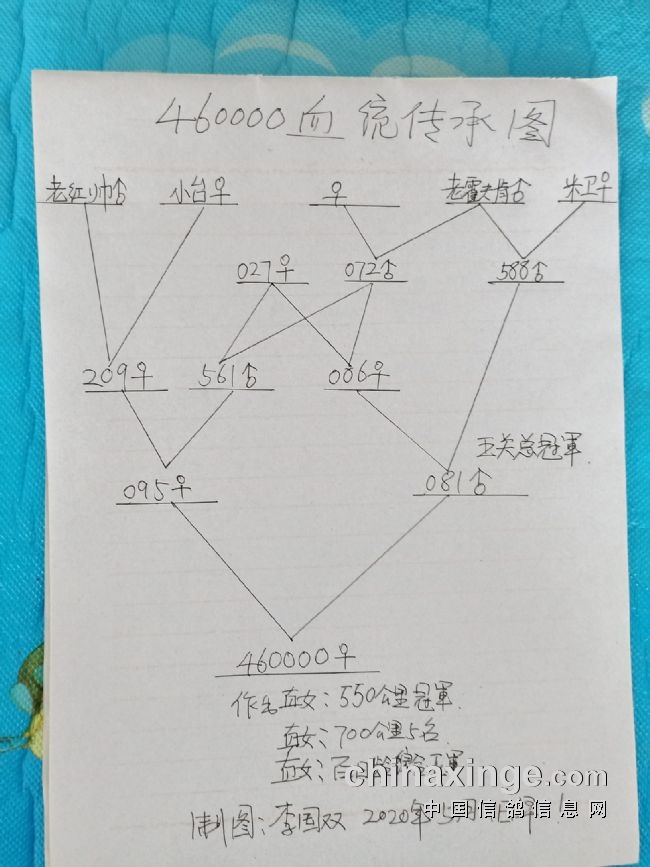 460000血统传承图
老红帅♂ 小台♀ ♀ 老霍夫肯♂ 米卫♀
027♀ 072♂ 588♂
209♀ 561♂ 006♀
五关总冠軍
095♀ 081♂
460000♀
作出直女：550公里冠軍
直女：700公里5名
直女：
chinaxinge.com
制图：李国双 2020年5月
中国信鸽信息网